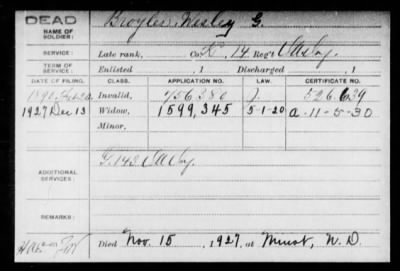 DEAD
NAME OF SOLDIER: Broyles, Wesley G.
SERVICE: Late rank, Co. K, 14 Reg't
TERM OF SERVICE: Enlisted , 1 Discharged , 1
DATE OF FILING. CLASS. APPLICATION NO. LAW. CERTIFICATE NO.
Invalid, 756380 526.639
1927 Dec 13 Widow, 1599,345 5-1-20 a-11-5-30
Minor,
ADDITIONAL SERVICES:
REMARKS:
Died Nov. 15, 1927, at Minot, N.D.